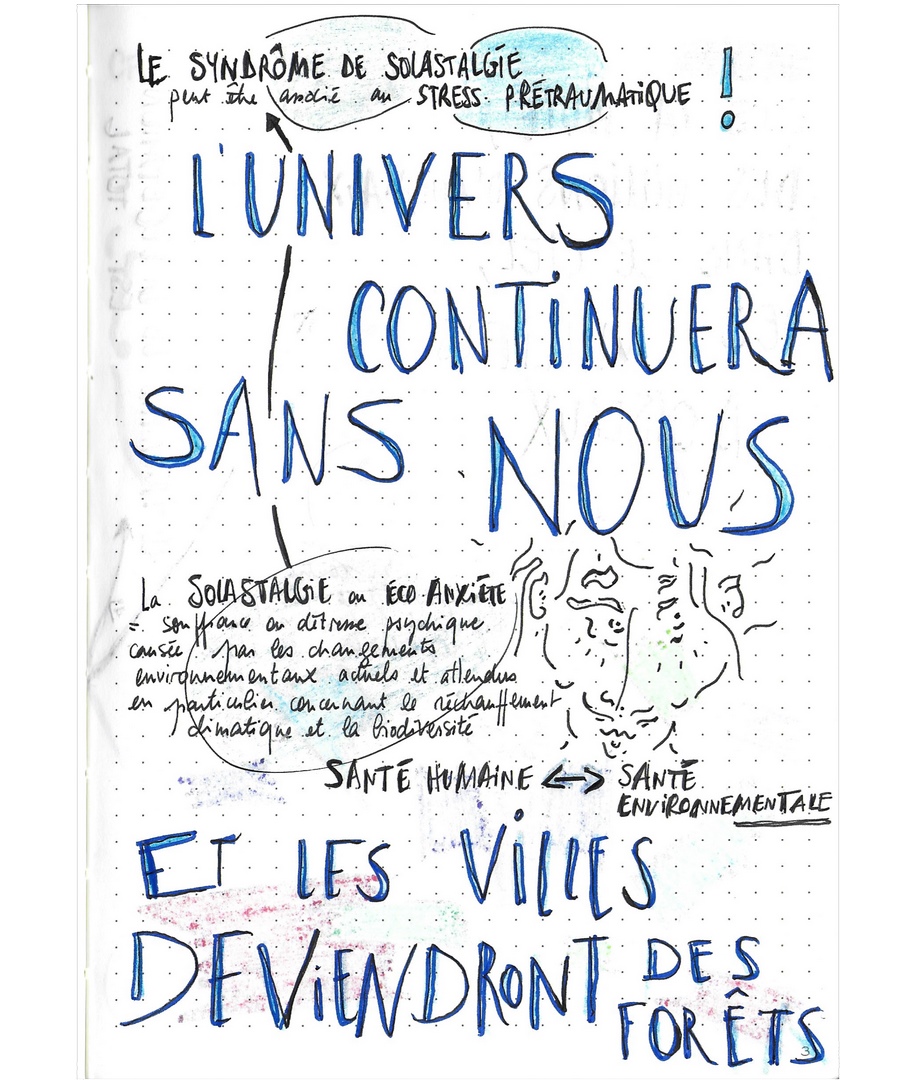 LE SYNDRÔME DE SOLASTALGIE
peut être associé au STRESS PRÉTRAUMATIQUE !
L'UNIVERS
CONTINUERA
SANS NOUS
La SOLASTALGIE ou ÉCO ANXIÉTÉ
= souffrance ou détresse psychique
causée par les changements
environnementaux actuels et attendus
en particulier concernant le réchauffement
climatique et la biodiversité
SANTÉ HUMAINE <-> SANTÉ
ENVIRONNEMENTALE
ET LES VILLES
DEVIENDRONT DES
FORÊTS
3